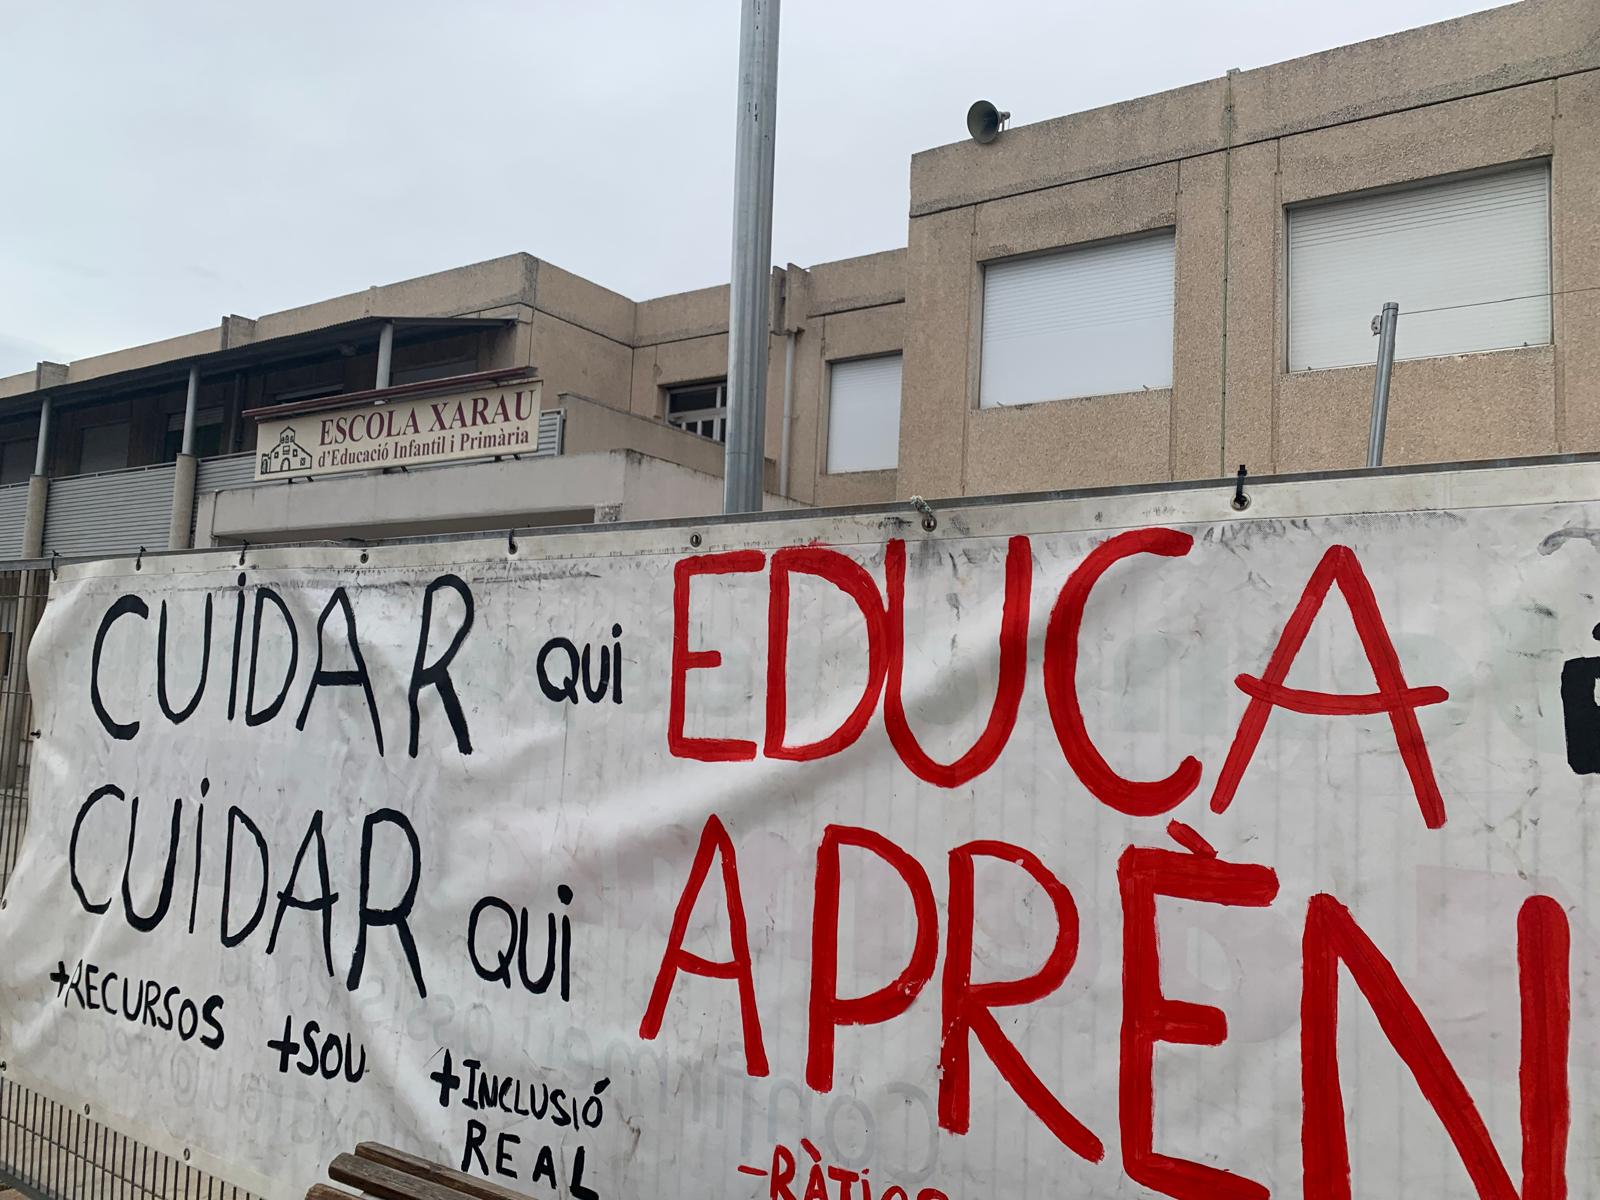 ESCOLA XARAU
d'Educació Infantil i Primària
CUiDAR QUI EDUCA
CUiDAR QUI APRÈN
+RECURSOS +SOU +INCLUSIÓ REAL
-RÀTIOS